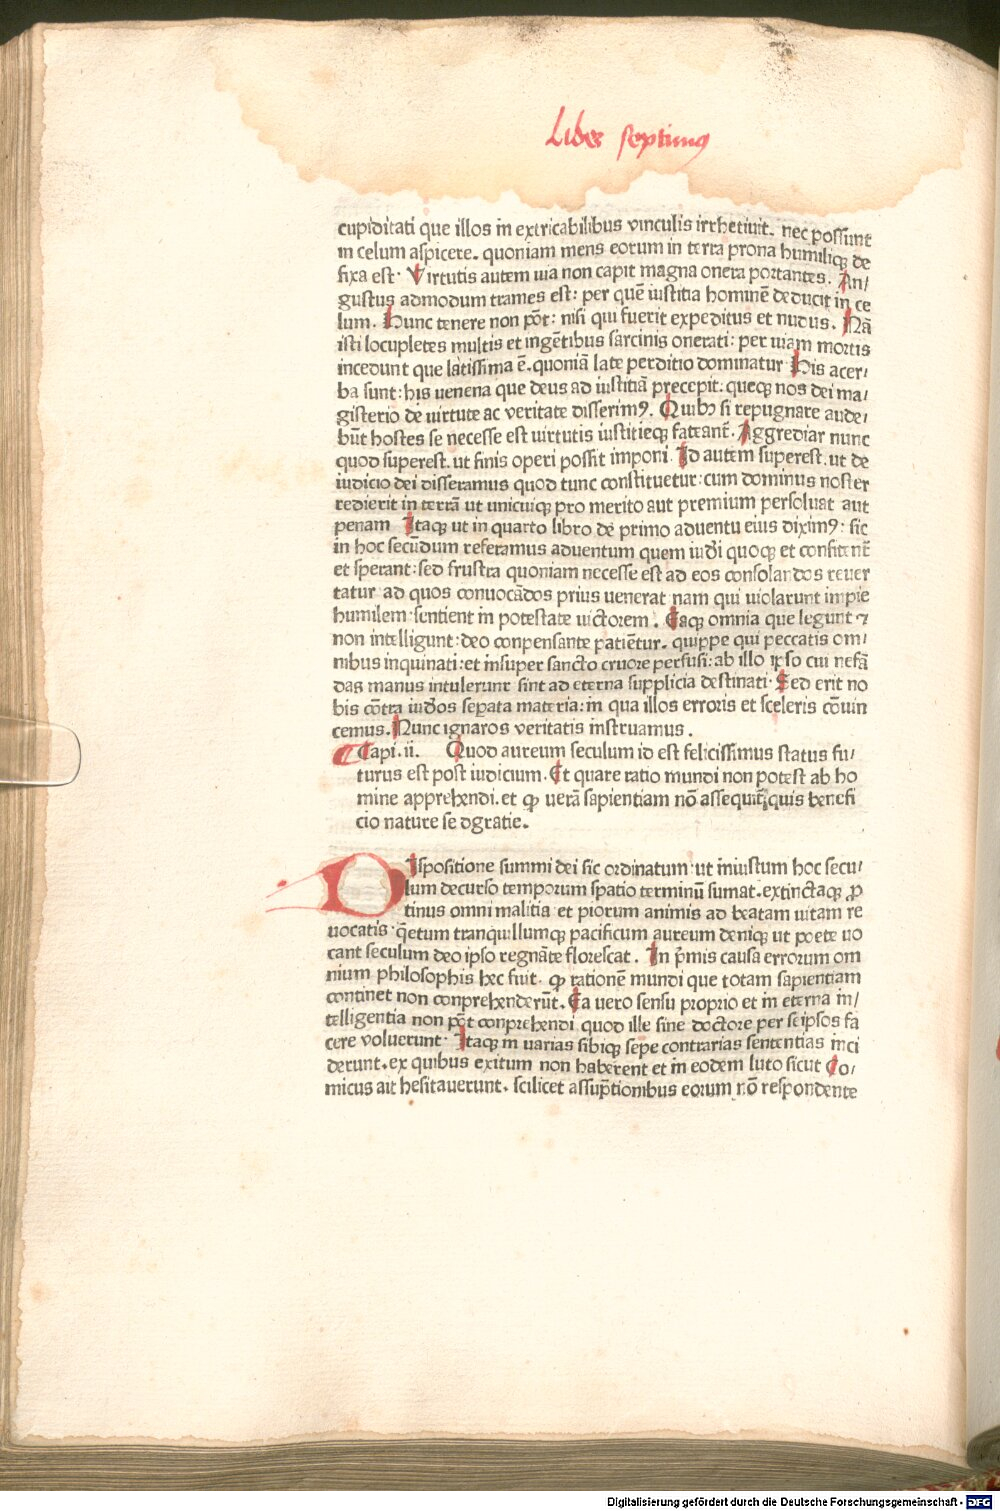 Liber septimus
cupiditati que illos in extricabilibus vinculis irrhetiuit. nec possunt
in celum aspicere. quoniam mens eorum in terra prona humiliqȝ de
fixa est· Virtutis autem uia non capit magna onera portantes. An/
gustus admodum trames est: per quē iustitia hominē deducit in ce
lum. Hunc tenere non pōt: nisi qui fuerit expeditus et nudus. Nā
isti locupletes multis et ingētibus sarcinis onerati: per uiam mortis
incedunt que latissima ē. quoniā late perditio dominatur His acer/
ba sunt: his uenena que deus ad iustitiā precepit: quecqȝ nos dei ma/
gisterio de uirtute ac veritate disserimꝰ. Quibꝫ si repugnare aude/
būt hostes se necesse est uirtutis iustitieqȝ fateant̄. Aggrediar nunc
quod superest. ut finis operi possit imponi. Id autem superest. ut de
iudicio dei disseramus quod tunc constituetur: cum dominus noster
redierit in terrā ut unicuiqȝ pro merito aut premium persoluat aut
penam Itaqȝ ut in quarto libro de primo aduentu eius diximꝰ: sic
in hoc secūdum referamus aduentum quem iud̄i quoqȝ et confitent̄
et sperant: sed frustra quoniam necesse est ad eos consolandos reuer
tatur ad quos conuocādos prius uenerat nam qui uiolarunt impie
humilem· sentient in potestate uictorem. Eaqȝ omnia que legunt ⁊
non intelligunt: deo conpensante patiētur. quippe qui peccatis om/
nibus inquinati: et insuper sancto cruore perfusi: ab illo ipso cui nefā
das manus intulerunt sint ad eterna supplicia destinati· Sed erit no
bis cōtra iud̄os seperata materia: in qua illos erroris et sceleris cōuin
cemus. Nunc ignaros veritatis instruamus.
Capi. ii. Quod aureum seculum id est felicissimus status fu/
turus est post iudicium. Et quare ratio mundi non potest ab ho
mine apprehendi. et ꝙ uerā sapientiam nō assequit̄ quis benefi
cio nature sed gratie.
DIspositione summi dei sic ordinatum· ut iniustum hoc secu/
lum decurso temporum spatio terminū sumat. extinctaqȝ ꝓ
tinus omni malitia et piorum animis ad beatam uitam re
uocatis· q̄etum tranquillumqȝ pacificum aureum deniqȝ ut poete uo
cant seculum deo ipso regnāte florescat. In p̄mis causa errorum om
nium philosophis hec fuit. ꝙ rationē mundi que totam sapientiam
continet non conprehenderūt. Ea uero sensu proprio et in eterna in/
telligentia non pōt conprehendi quod ille sine doctore per seipsos fa
cere voluerunt· Itaqȝ in uarias sibiqȝ sepe contrarias sententias inci
derunt. ex quibus exitum non haberent et in eodem luto sicut Co/
micus ait hesitauerunt. scilicet assūptionibus eorum nō respondente
Digitalisierung gefördert durch die Deutsche Forschungsgemeinschaft - DFG